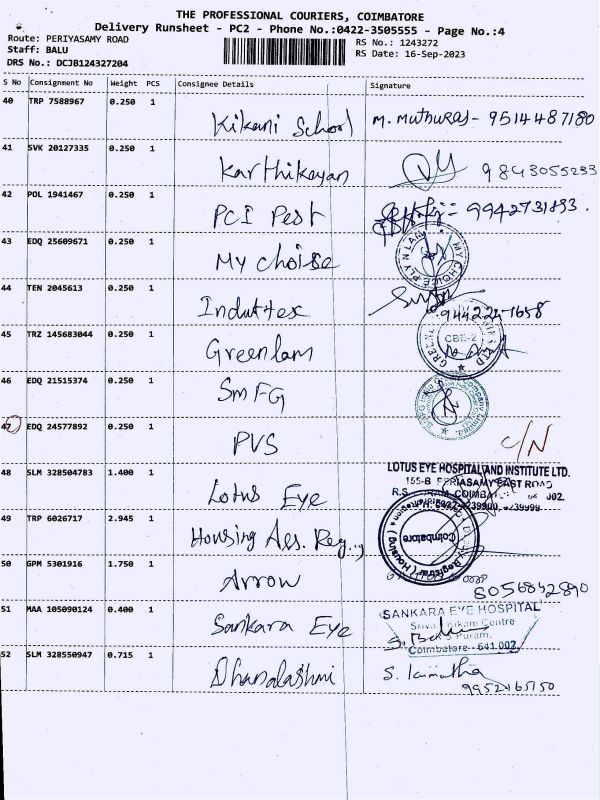 THE PROFESSIONAL COURIERS, COIMBATORE
Delivery Runsheet - PC2 - Phone No.:0422-3505555 - Page No.:4
Route: PERIYASAMY ROAD
RS No.: 1243272
Staff: BALU
RS Date: 16-Sep-2023
DRS No.: DCJB124327204
S No Consignment No Weight PCS Consignee Details Signature
40 TRP 7588967 0.250 1
Kikani School M. Muthuraj - 9514487180
41 SVK 20127335 0.250 1
Karthikeyan 9843055233
42 POL 1941467 0.250 1
PCI Pest 9942731893.
43 EDQ 25609671 0.250 1
My choise MY CHOICE PLY N LAM
44 TEN 2045613 0.250 1
Induttex 944222-1658
45 TRZ 145683044 0.250 1
Greenlam CBE-2
46 EDQ 21515374 0.250 1
Sm FG
47 EDQ 24577892 0.250 1
PVS C/N
48 SLM 328504783 1.400 1
LOTUS EYE HOSPITAL AND INSTITUTE LTD.
155-B PERIASAMY EAST ROAD
Lotus Eye
49 TRP 6026717 2.945 1
Housing Aes. Reg.
Coimbatore
50 GPM 5301916 1.750 1
Arrow 8056842890
51 MAA 105090124 0.400 1
SANKARA EYE HOSPITAL
Sankara Eye
Coimbatore - 641 002.
52 SLM 328550947 0.715 1
Dhanalashmi S. Kamatha
9952465150